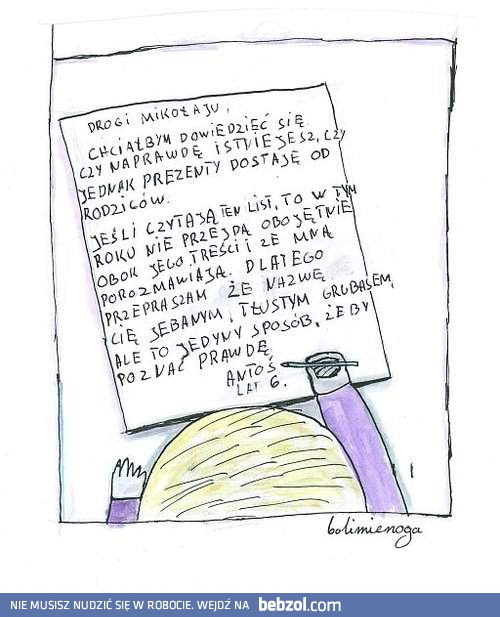 DROGI MIKOŁAJU,
CHCIAŁBYM DOWIEDZIEĆ SIĘ
CZY NAPRAWDĘ ISTNIEJESZ, CZY
JEDNAK PREZENTY DOSTAJĘ OD
RODZICÓW.
JEŚLI CZYTAJĄ TEN LIST, TO W TYM
ROKU NIE PRZEJDĄ OBOJĘTNIE
OBOK JEGO TREŚCI I ZE MNĄ
POROZMAWIAJĄ. DLATEGO
PRZEPRASZAM ŻE NAZWĘ
CIĘ JEBANYM, TŁUSTYM GRUBASEM,
ALE TO JEDYNY SPOSÓB, ŻEBY
POZNAĆ PRAWDĘ.
ANTOŚ
LAT 6.
bolimienoga
NIE MUSISZ NUDZIĆ SIĘ W ROBOCIE. WEJDŹ NA bebzol.com